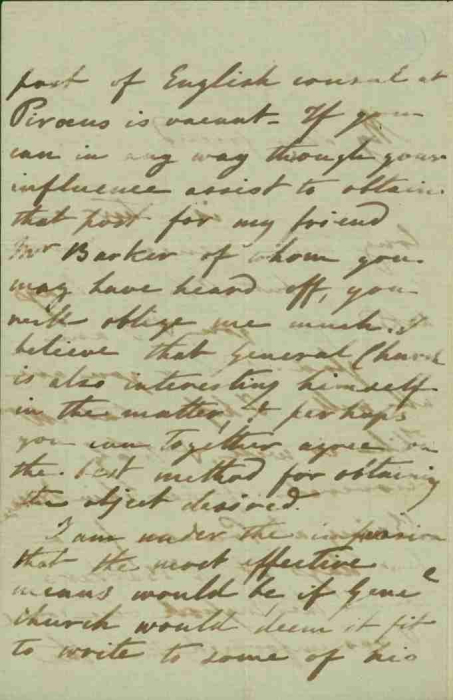 post of English consul at
Piroeus is vacant - If you
can in any way through your
influence assist to obtain
that post for my friend
Mr Barker of whom you
may have heard off, you
will oblige me much. I
believe that general Church
is also interesting himself
in the matter, & perhaps
you can together agree on
the best method for obtaining
the object desired.
I am under the impression
that the most effective
means would be if Genel
Church would deem it fit
to write to some of his